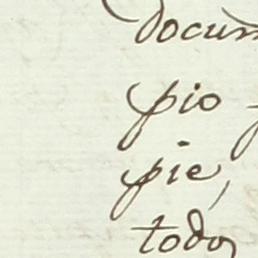 docum
pio
pie,
todo